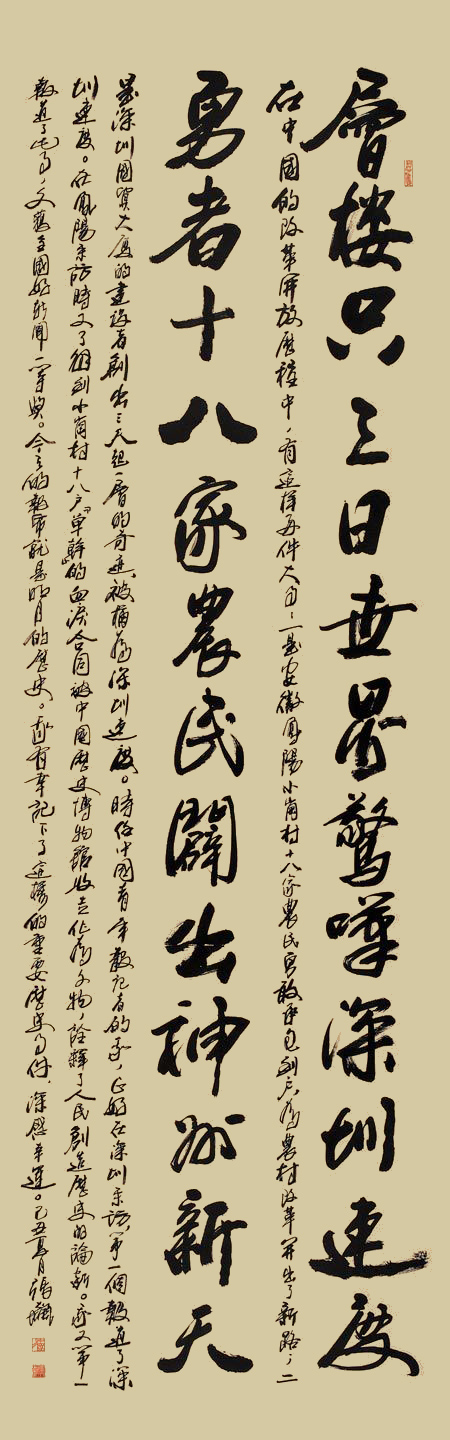 層楼只三日世界驚嘩深圳速度
在中國的改革開放歷程中，有這樣两件大事：一是安徽鳳陽小崗村十八家農民勇敢承包到户，為農村改革開出了新路；二
勇者十八家農民闢出神州新天
是深圳國貿大廈的建設者創出三天起一層的奇迹，被稱為深圳速度。時任中國青年報記者的我，正好在深圳采訪，第一個報道了深
圳速度。在鳳陽采訪時又了解到小崗村十八户“單幹”的血淚合同被中國歷史博物館收去作為文物，詮釋了人民創造歷史的論斷。我又第一
報道了此事，文獲全國好新聞二等獎。今天的報帋就是明日的歷史。我有幸記下了這樣的重要歷史事件，深感幸運。己丑夏月張飆